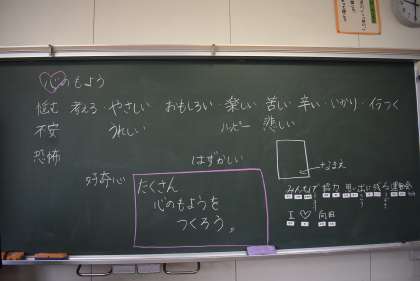 心のもよう
悩む 考える・やさしい おもしろい・楽しい 苦しい・辛い・いかり・イラつく
不安 うれしい ハッピー 悲しい
恐怖
はずかしい
好奇心
たくさん
心のもようを
つくろう。
なまえ
みんなで 協力 思い出に残る 運動会
I ♡ 向日